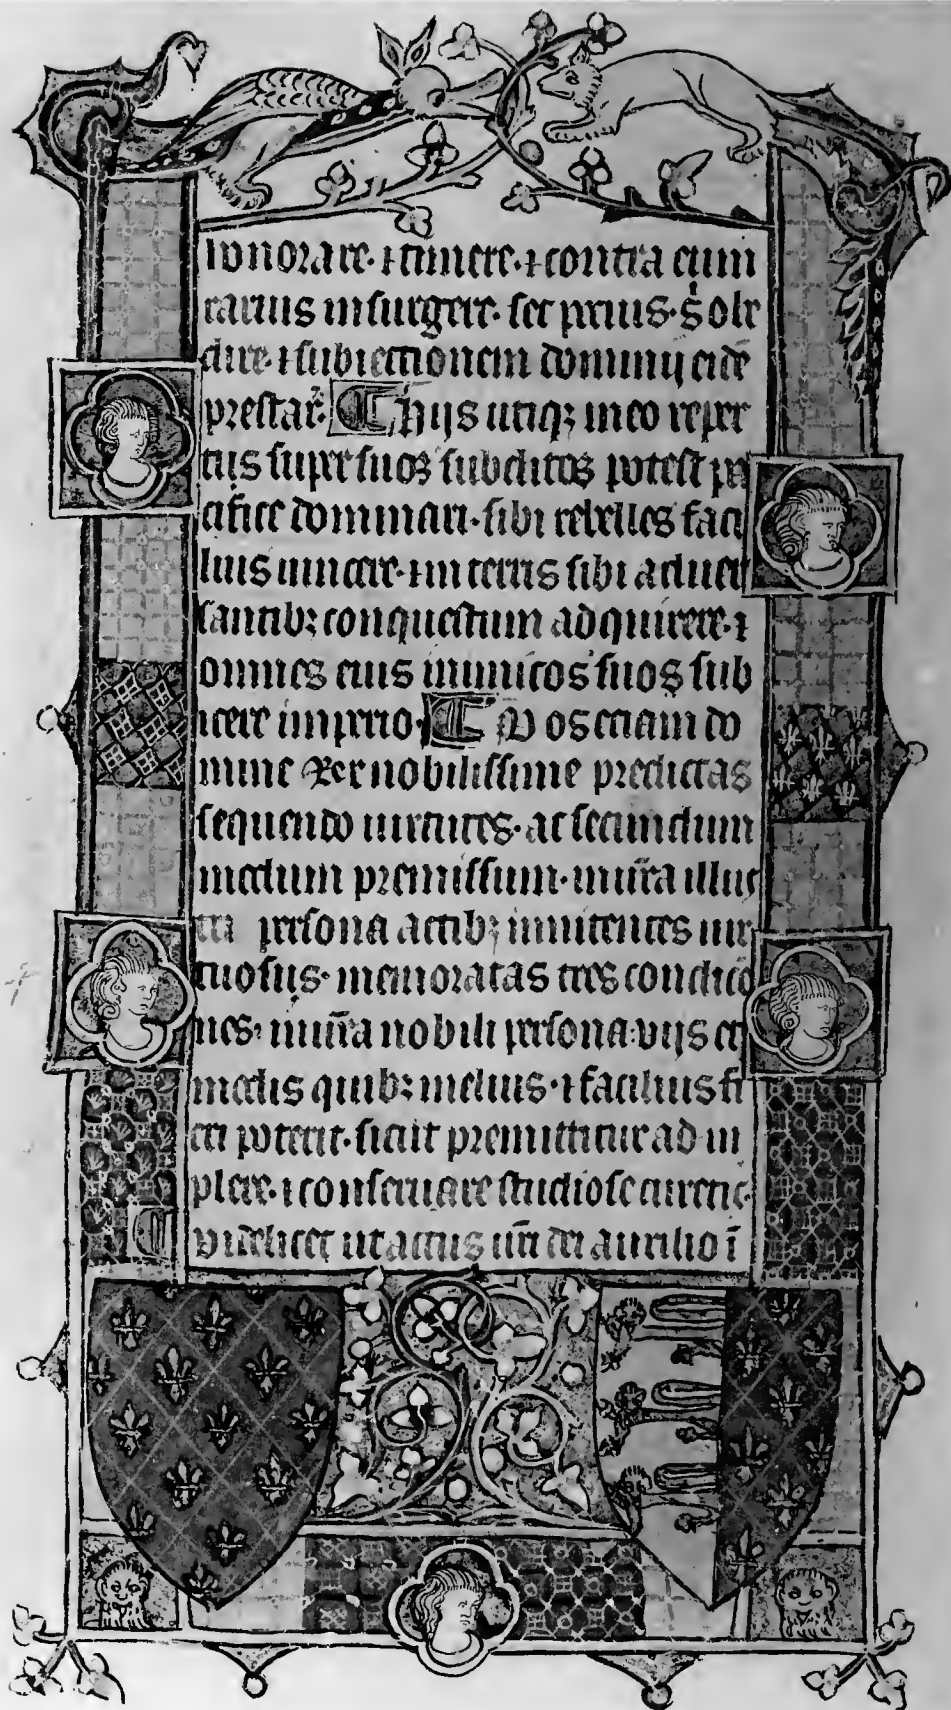 honorare · ⁊ timere · ⁊ contra eum
rarius insurgere · set prius · sͥ obe
dire · ⁊ subiectionem dominij eidē
prestar̄ · ¶ Hijs utiqꝫ in eo reper
tis super suos subditos potest pa
cifice dominari · sibi rebelles faci
lius uincere · ⁊ in terris sibi aduer
santibꝫ conquestum adquirere · ⁊
omnes eius inimicos suos sub
icere imperio · ¶ Vos etiam do
mine Rex nobilissime predictas
sequendo uirtutes · ac secundum
modum premissum · in ur̄a illus
tri persona actibꝫ innitentes uir
tuosis · memoratas tres condicō
nes · in ur̄a nobili persona · vijs et
modis quibꝫ melius · ⁊ facilius fi
eri poterit · sicut premittitur ad im
plere · ⁊ conseruare studiose curetis ·
videlicet ut actus ur̄i dei auxilio ī